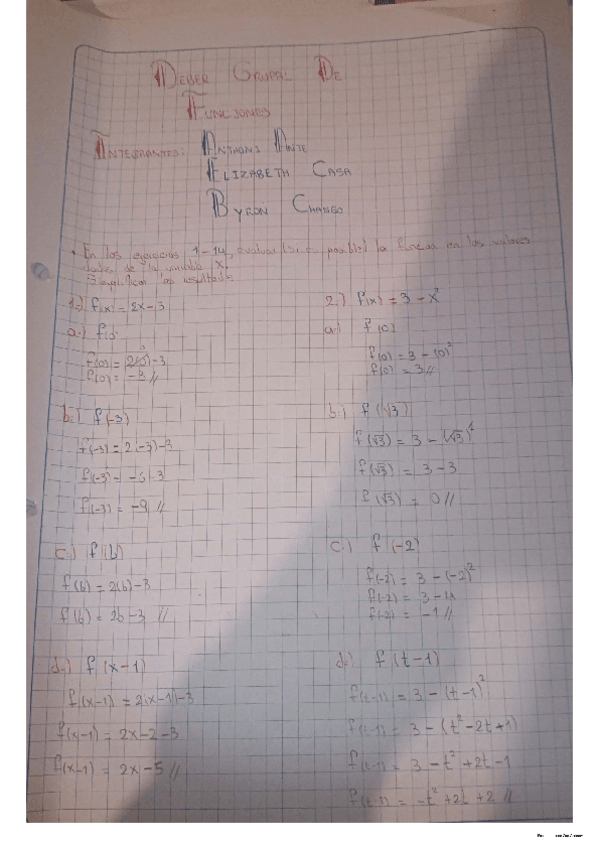 DEBER GRUPAL DE
FUNCIONES
INTEGRANTES: ANTHONI ANTE
ELIZABETH CASA
BYRON CHANGO
• En los ejercicios 1-14, evaluar (si es posible) la función en los valores
dados de la variable x.
Simplificar los resultados
1.) f(x) = 2x-3
a.) f(0)
f(0) = 2(0)-3
f(0) = -3 //
b.) f(-3)
f(-3) = 2(-3)-3
f(-3) = -6-3
f(-3) = -9 //
c.) f(b)
f(b) = 2(b)-3
f(b) = 2b-3 //
d.) f(x-1)
f(x-1) = 2(x-1)-3
f(x-1) = 2x-2-3
f(x-1) = 2x-5 //
2.) f(x) = 3 - x²
a.) f(0)
f(0) = 3 - (0)²
f(0) = 3 //
b.) f(√3)
f(√3) = 3 - (√3)²
f(√3) = 3-3
f(√3) = 0 //
c.) f(-2)
f(-2) = 3 - (-2)²
f(-2) = 3-4
f(-2) = -1 //
d.) f(t-1)
f(t-1) = 3 - (t-1)²
f(t-1) = 3 - (t²-2t+1)
f(t-1) = 3 - t² + 2t - 1
f(t-1) = -t² + 2t + 2 //